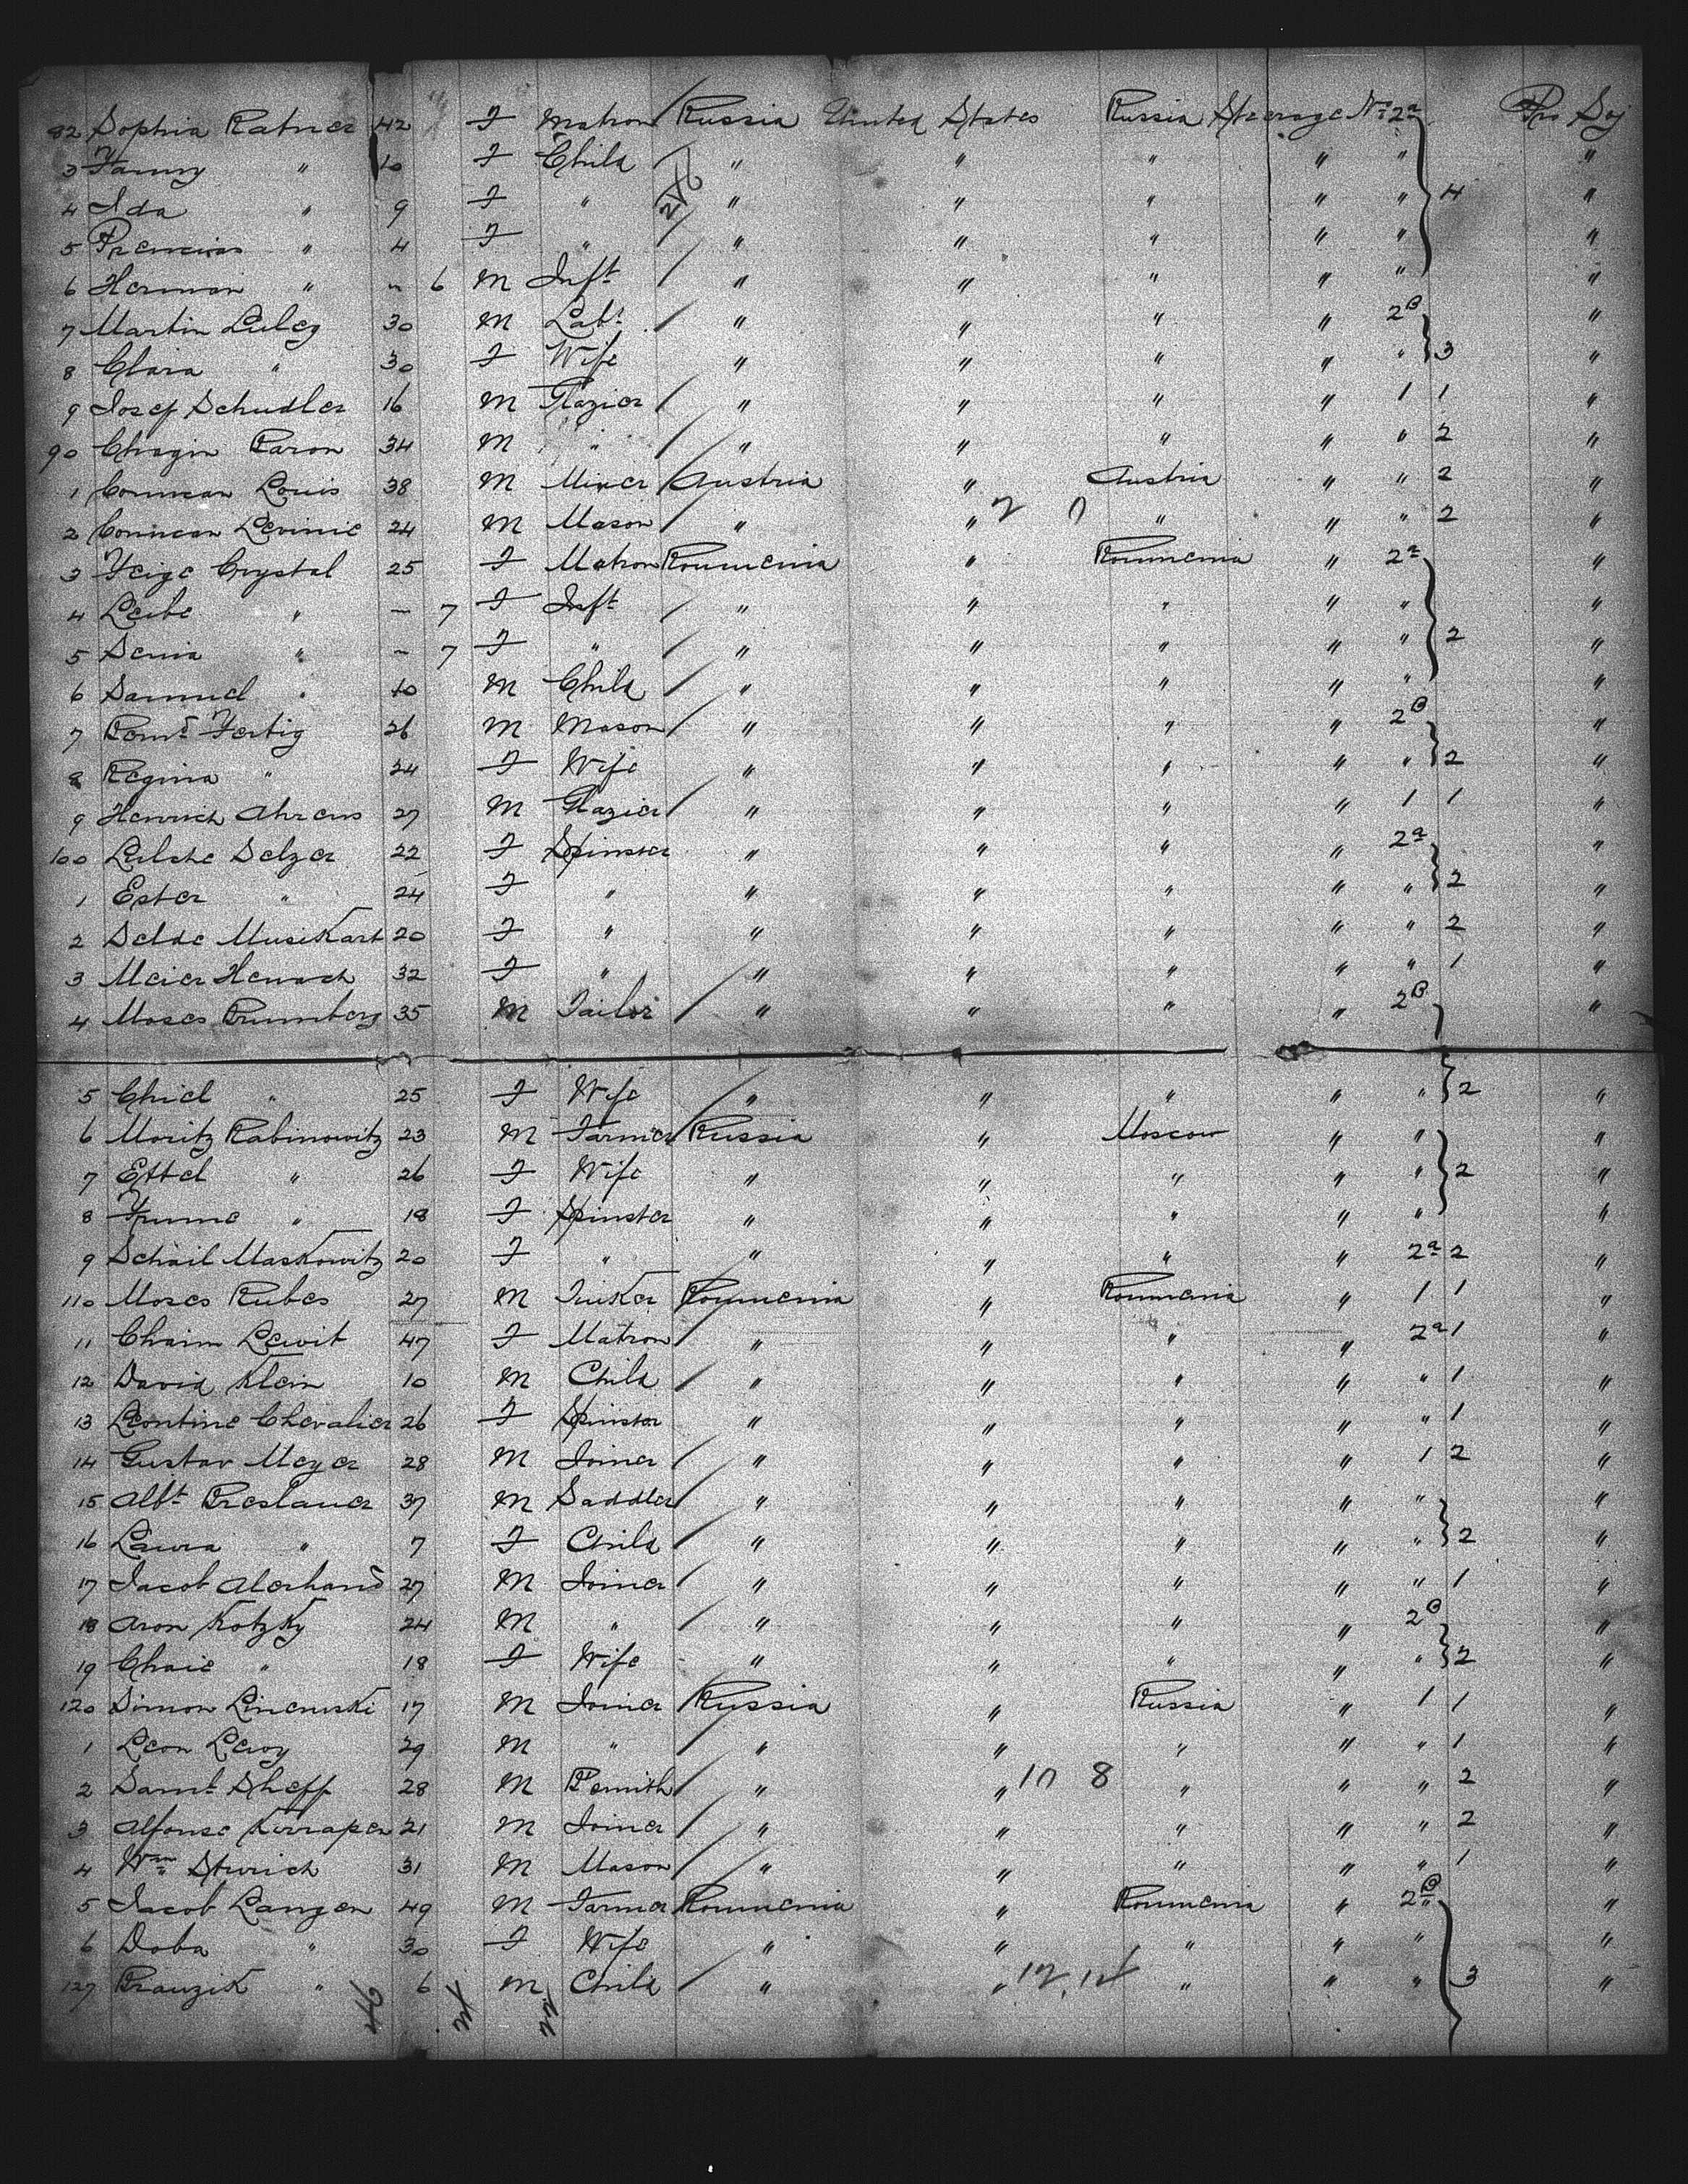 82 Sophia Ratner 42 F Matron Russia United States Russia Steerage No 2a Pro Soj
3 Fanny " 10 F Child " " " " " 4 "
4 Ida " 9 F " " " " " " "
5 " 4 F " " " " " " "
6 Herman " - 6 M Inft " " " " " "
7 Martin Lubey 30 M Labr " " " " 2B "
8 Clara " 30 F Wife " " " " " 3 "
9 Josef Schudler 16 M Glazier " " " " 1 1 "
90 Chagin Baron 34 M " " " " " " 2 "
1 Louis 38 M Mixer Austria " Austria " " 2 "
2 24 M Mason " " 2 0 " " " 2 "
3 Feige Crystal 25 F Matron Roumenia " Roumenia " 2a "
4 Leibe " - 7 F Inft " " " " " "
5 Senia " - 7 F " " " " " " 2 "
6 Samuel " 10 M Child " " " " " "
7 Fertig 26 M Mason " " " " 2B "
8 Regina " 24 F Wife " " " " " 2 "
9 Henrich Ahrens 27 M Glazier " " " " 1 1 "
100 Selzer 22 F Spinster " " " " 2a "
1 Ester " 24 F " " " " " " 2 "
2 Selde Musikart 20 F " " " " " " 2 "
3 Meier Henoch 32 F " " " " " " 1 "
4 Moses Brumberg 35 M Tailor " " " " 2B "
5 Chiel " 25 F Wife " " " " " 2 "
6 Moritz Rabinowitz 23 M Farmer Russia " Moscow " " "
7 Ettel " 26 F Wife " " " " " 2 "
8 Frume " 18 F Spinster " " " " " "
9 Schail Maskowitz 20 F " " " " " 2a 2 "
110 Moses Rubes 27 M Tinker Roumenia " Roumenia " 1 1 "
11 Chaim Lewit 47 F Matron " " " " 2a 1 "
12 David Klein 10 M Child " " " " " 1 "
13 Leontine Chevalier 26 F Spinster " " " " " 1 "
14 Gustav Meyer 28 M Joiner " " " " 1 2 "
15 Albt Breslauer 37 M Saddler " " " " " "
16 Laura " 7 F Child " " " " " 2 "
17 Jacob Alerhand 27 M Joiner " " " " " 1 "
18 Aron Kotzky 24 M " " " " " 2B "
19 Chaie " 18 F Wife " " " " " 2 "
120 Simon 17 M Joiner Russia " Russia " 1 1 "
1 Leon Leroy 29 M " " " " " " 1 "
2 Saml Sheff 28 M " " 10 8 " " " 2 "
3 Alfonse 21 M Joiner " " " " " 2 "
4 Wm Sturich 31 M Mason " " " " " 1 "
5 Jacob Langer 49 M Farmer Roumenia " Roumenia " 2B "
6 Doba " 30 F Wife " " " " " "
127 Branzik " 6 M Child " " 12 " " " 3 "